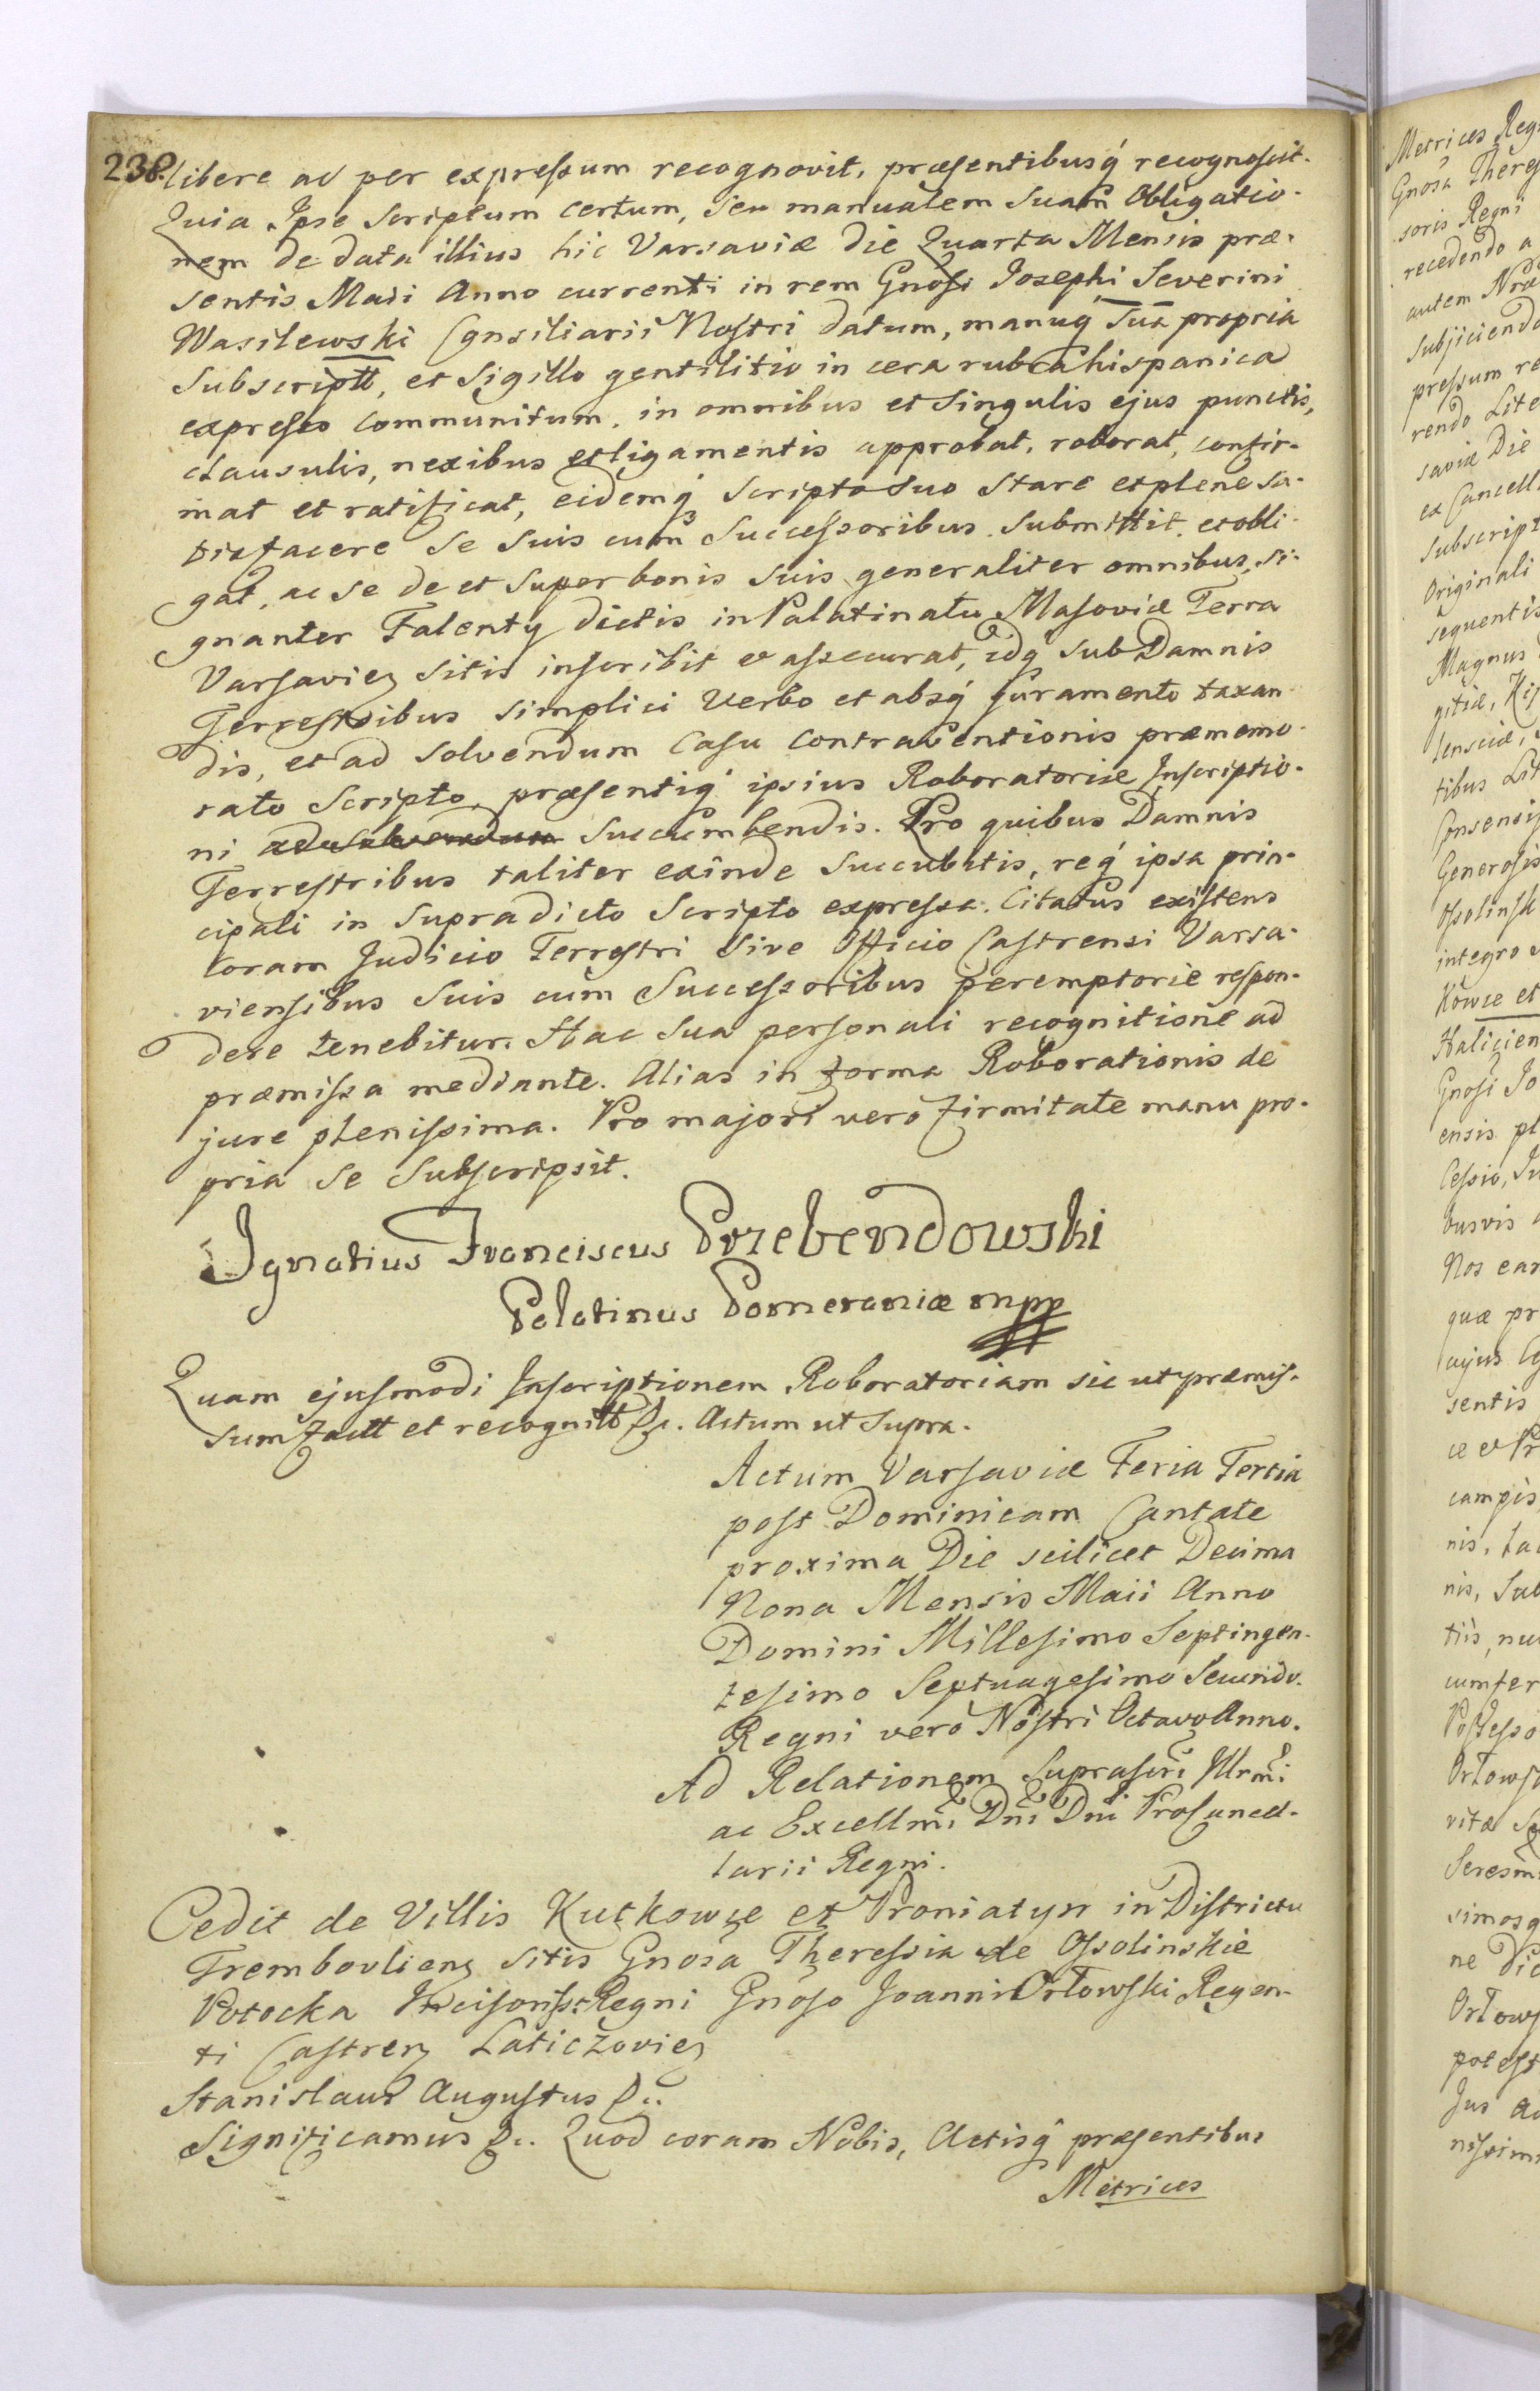 238.
libere ac per expressum recognovit, præsentibusq́ recognoscit.
Quia Ipse Scriptum certum, seu manualem Suam Obligatio-
nem de data illius hic Varsaviæ die Quarta Mensis præ-
sentis Maii Anno currenti in rem Gnosi Josephi Severini
Wasilewski Consiliarii Nostri datum, manuq́ Sua propria
Subscriptt, et Sigillo gentilitio in cera rubra hispanica
expresso communitum, in omnibus et Singulis ejus punctis,
clausulis, nexibus et ligamentis approbat, roborat, confir-
mat et ratificat, eidemq́ Scripto Suo Stare et plene Sa-
tisfacere Se Suis cum Successoribus Submittit et obli-
gat, ac Se de et Super bonis Suis generaliter omnibus, Si-
gnanter Falenty dictis in Palatinatu Masoviæ Terra
Varsavien Sitis inscribit et assecurat, idq́ Sub Damnis
Terrestribus Simplici Verbo et absq́ Juramento taxan-
dis, et ad Solvendum Casu Contraventionis præmemo-
rato Scripto, præsentiq́ ipsius Roboratoriæ Inscriptio-
ni Succumbendis. Pro quibus Damnis
Terrestribus taliter exinde Succubitis, req́ ipsa prin-
cipali in Supradicto Scripto expressa. Citatus existens
coram Judicio Terrestri Sive Officio Castrensi Varsa-
viensibus Suis cum Successoribus peremptorie respon-
dere tenebitur. Hac Sua personali recognitione ad
præmissa mediante. Alias in forma Roborationis de
jure plenissima. Pro majori vero firmitate manu pro-
pria Se Subscripsit.
Ignatius Franciscus Przebendowski
Palatinus Pomeraniæ mpp
Quam ejusmodi Inscriptionem Roboratoriam sic ut præmis-
sum factt et recognitt &c. Actum ut Supra.
Actum Varsaviæ Feria Tertia
post Dominicam Cantate
proxima Die scilicet Decima
Nona Mensis Maii Anno
Domini Millesimo Septingen-
tesimo Septuagesimo Secundo.
Regni vero Nostri Octavo Anno.
Ad Relationem Suprascri Illrmi
ac Excellmi Dni Dni Procancel-
larii Regni.
Cedit de Villis Kutkowce et Proniatyn in Districtu
Tremboulien Sitis Gnosa Theressia de Ossolinskie
Potocka Regni Gnoso Joanni Orłowski Regen-
ti Castren Laticzovien
Stanislaus Augustus &c.
Significamus &c. Quod coram Nobis, Actisq́ præsentibus
Metrices
Metrices Reg
Gnosa Theres
soris Regni
recedendo a
autem Nræ
Subjiciendo
pressum re
rendo Lite
saviæ Die
ex Cancell
Subscript
Originali
sequentis
Magnus
gitiæ, Kij
lensciæ,
tibus Lit
Consensi
Generosis
Ossolinsk
integro
kowce et
Halicien
Gnosi Jo
ensis pl
Cessio, Ju
busvis
Nos ear
quæ pr
cujus
sentis
ce et Pr
campis
nis, La
nis, Sub
tiis, nu
cumfer
Possesso
Orłowsk
vitæ
Seresm
simosq
ne Vic
Orłows
potest
Jus a
nissim